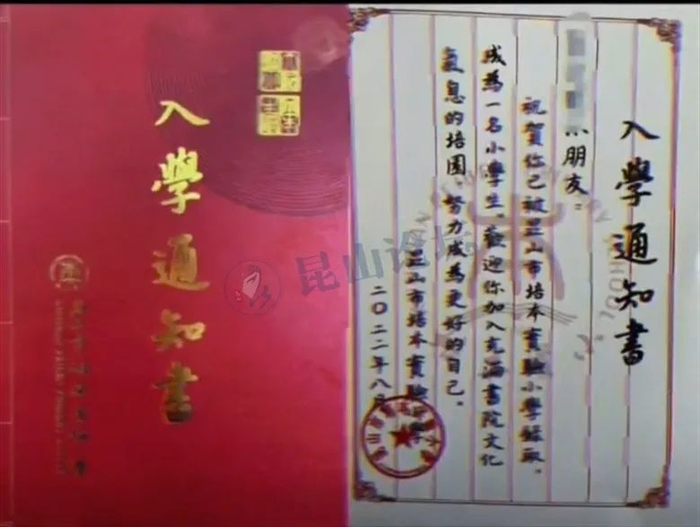 入學通知書
入學通知書
朋友：
祝賀你已被昆山市培本實驗小學錄取，
成為一名小學生。歡迎你加入充滿書院文化
氣息的培園，努力成為更好的自己。
昆山市培本實驗小學
二〇二二年八月
昆山论坛